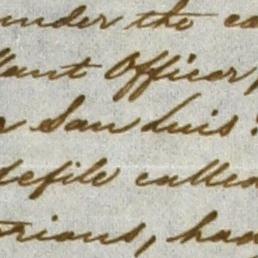 under the ca
llant Officer,
San Luis
defile called
trians, had